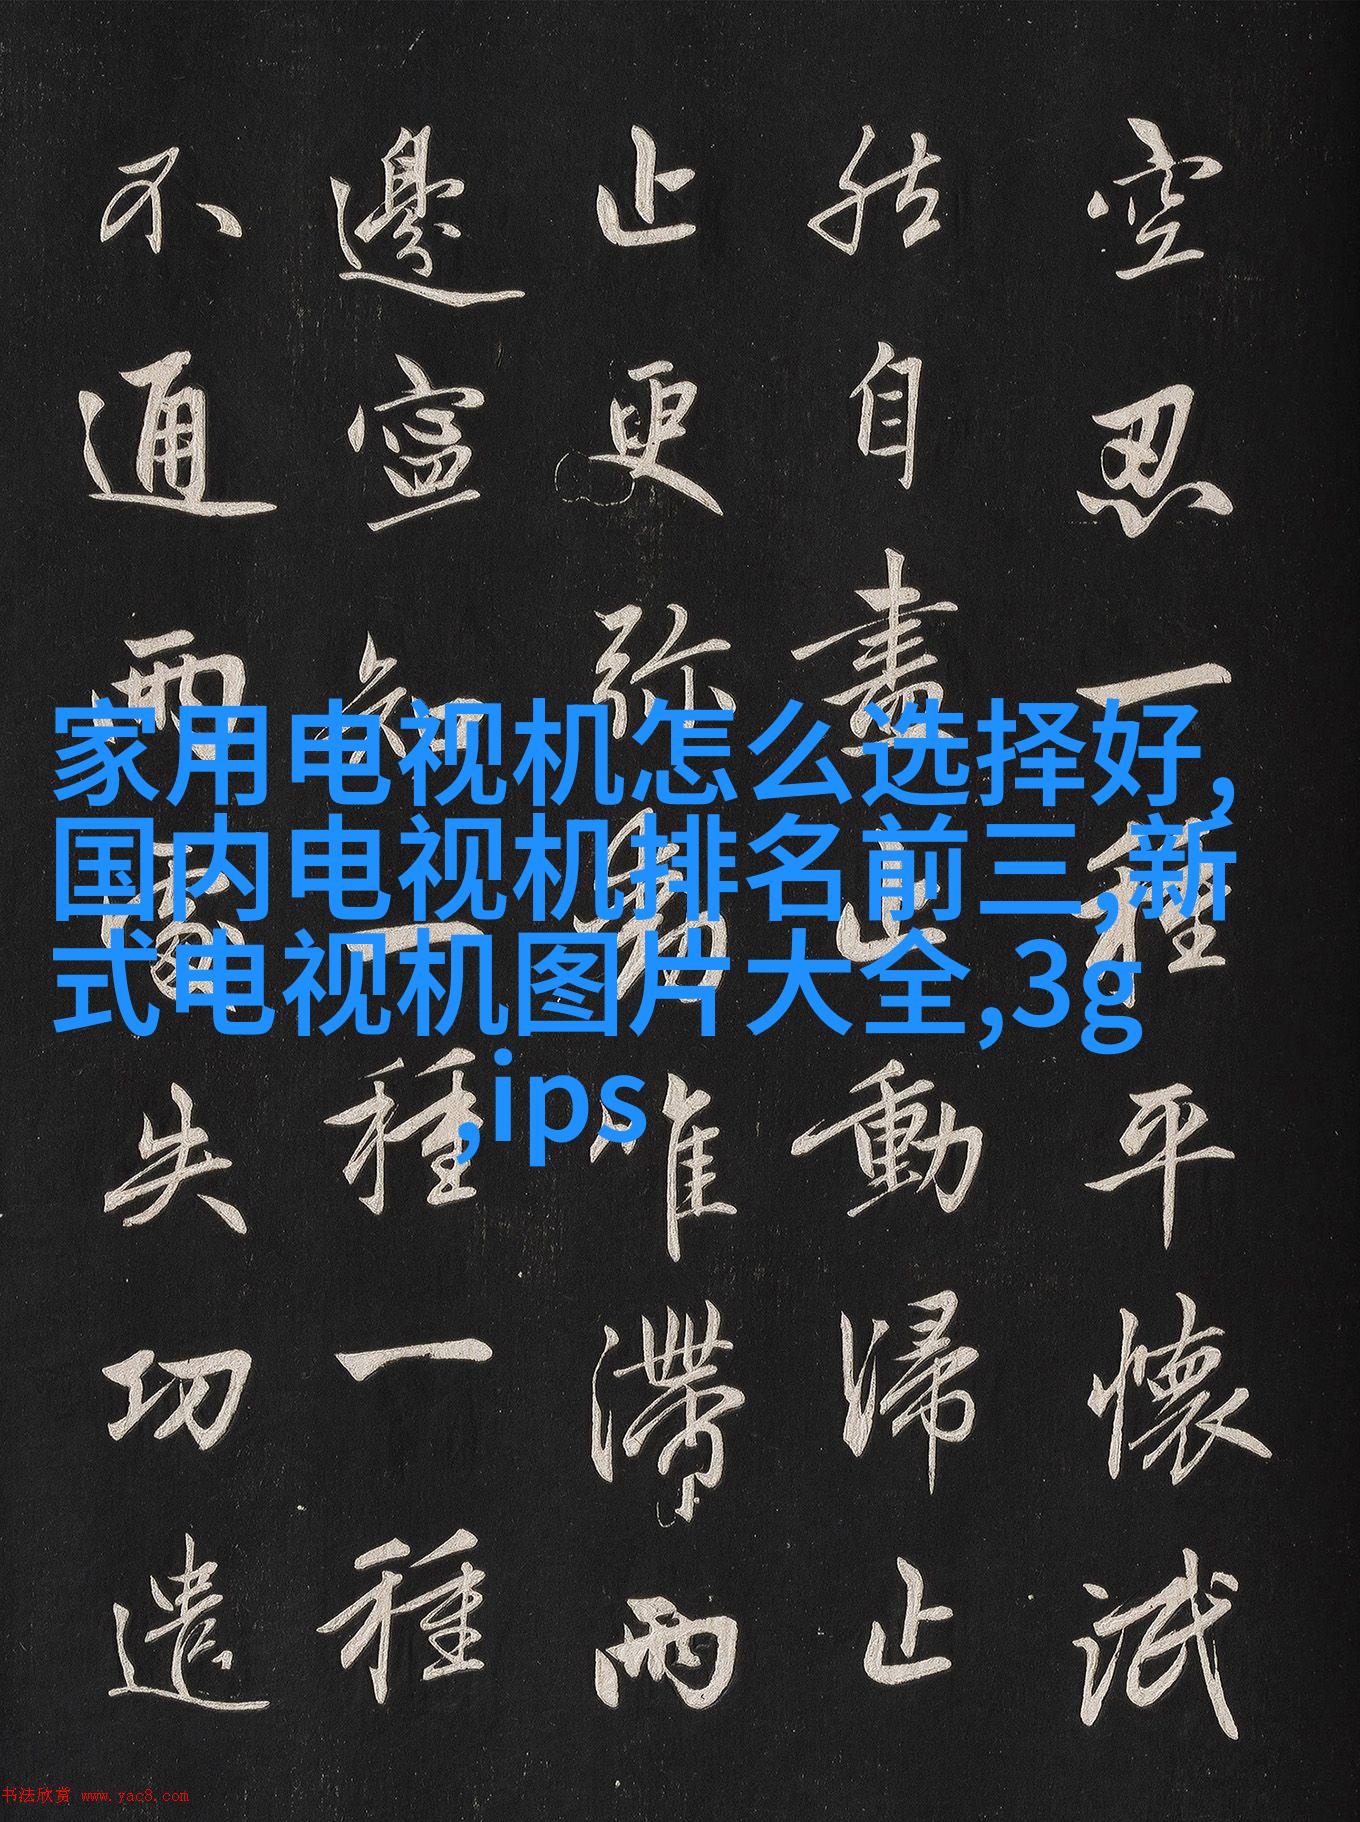 空忍一種平懷泯
然自盡止動歸止
止更彌動唯滯兩
邊寧知一種一種
不通兩處失功遣
家用电视机怎么选择好,
国内电视机排名前三,新
式电视机图片大全,3g
,ips
书法欣赏 www.yac8.com